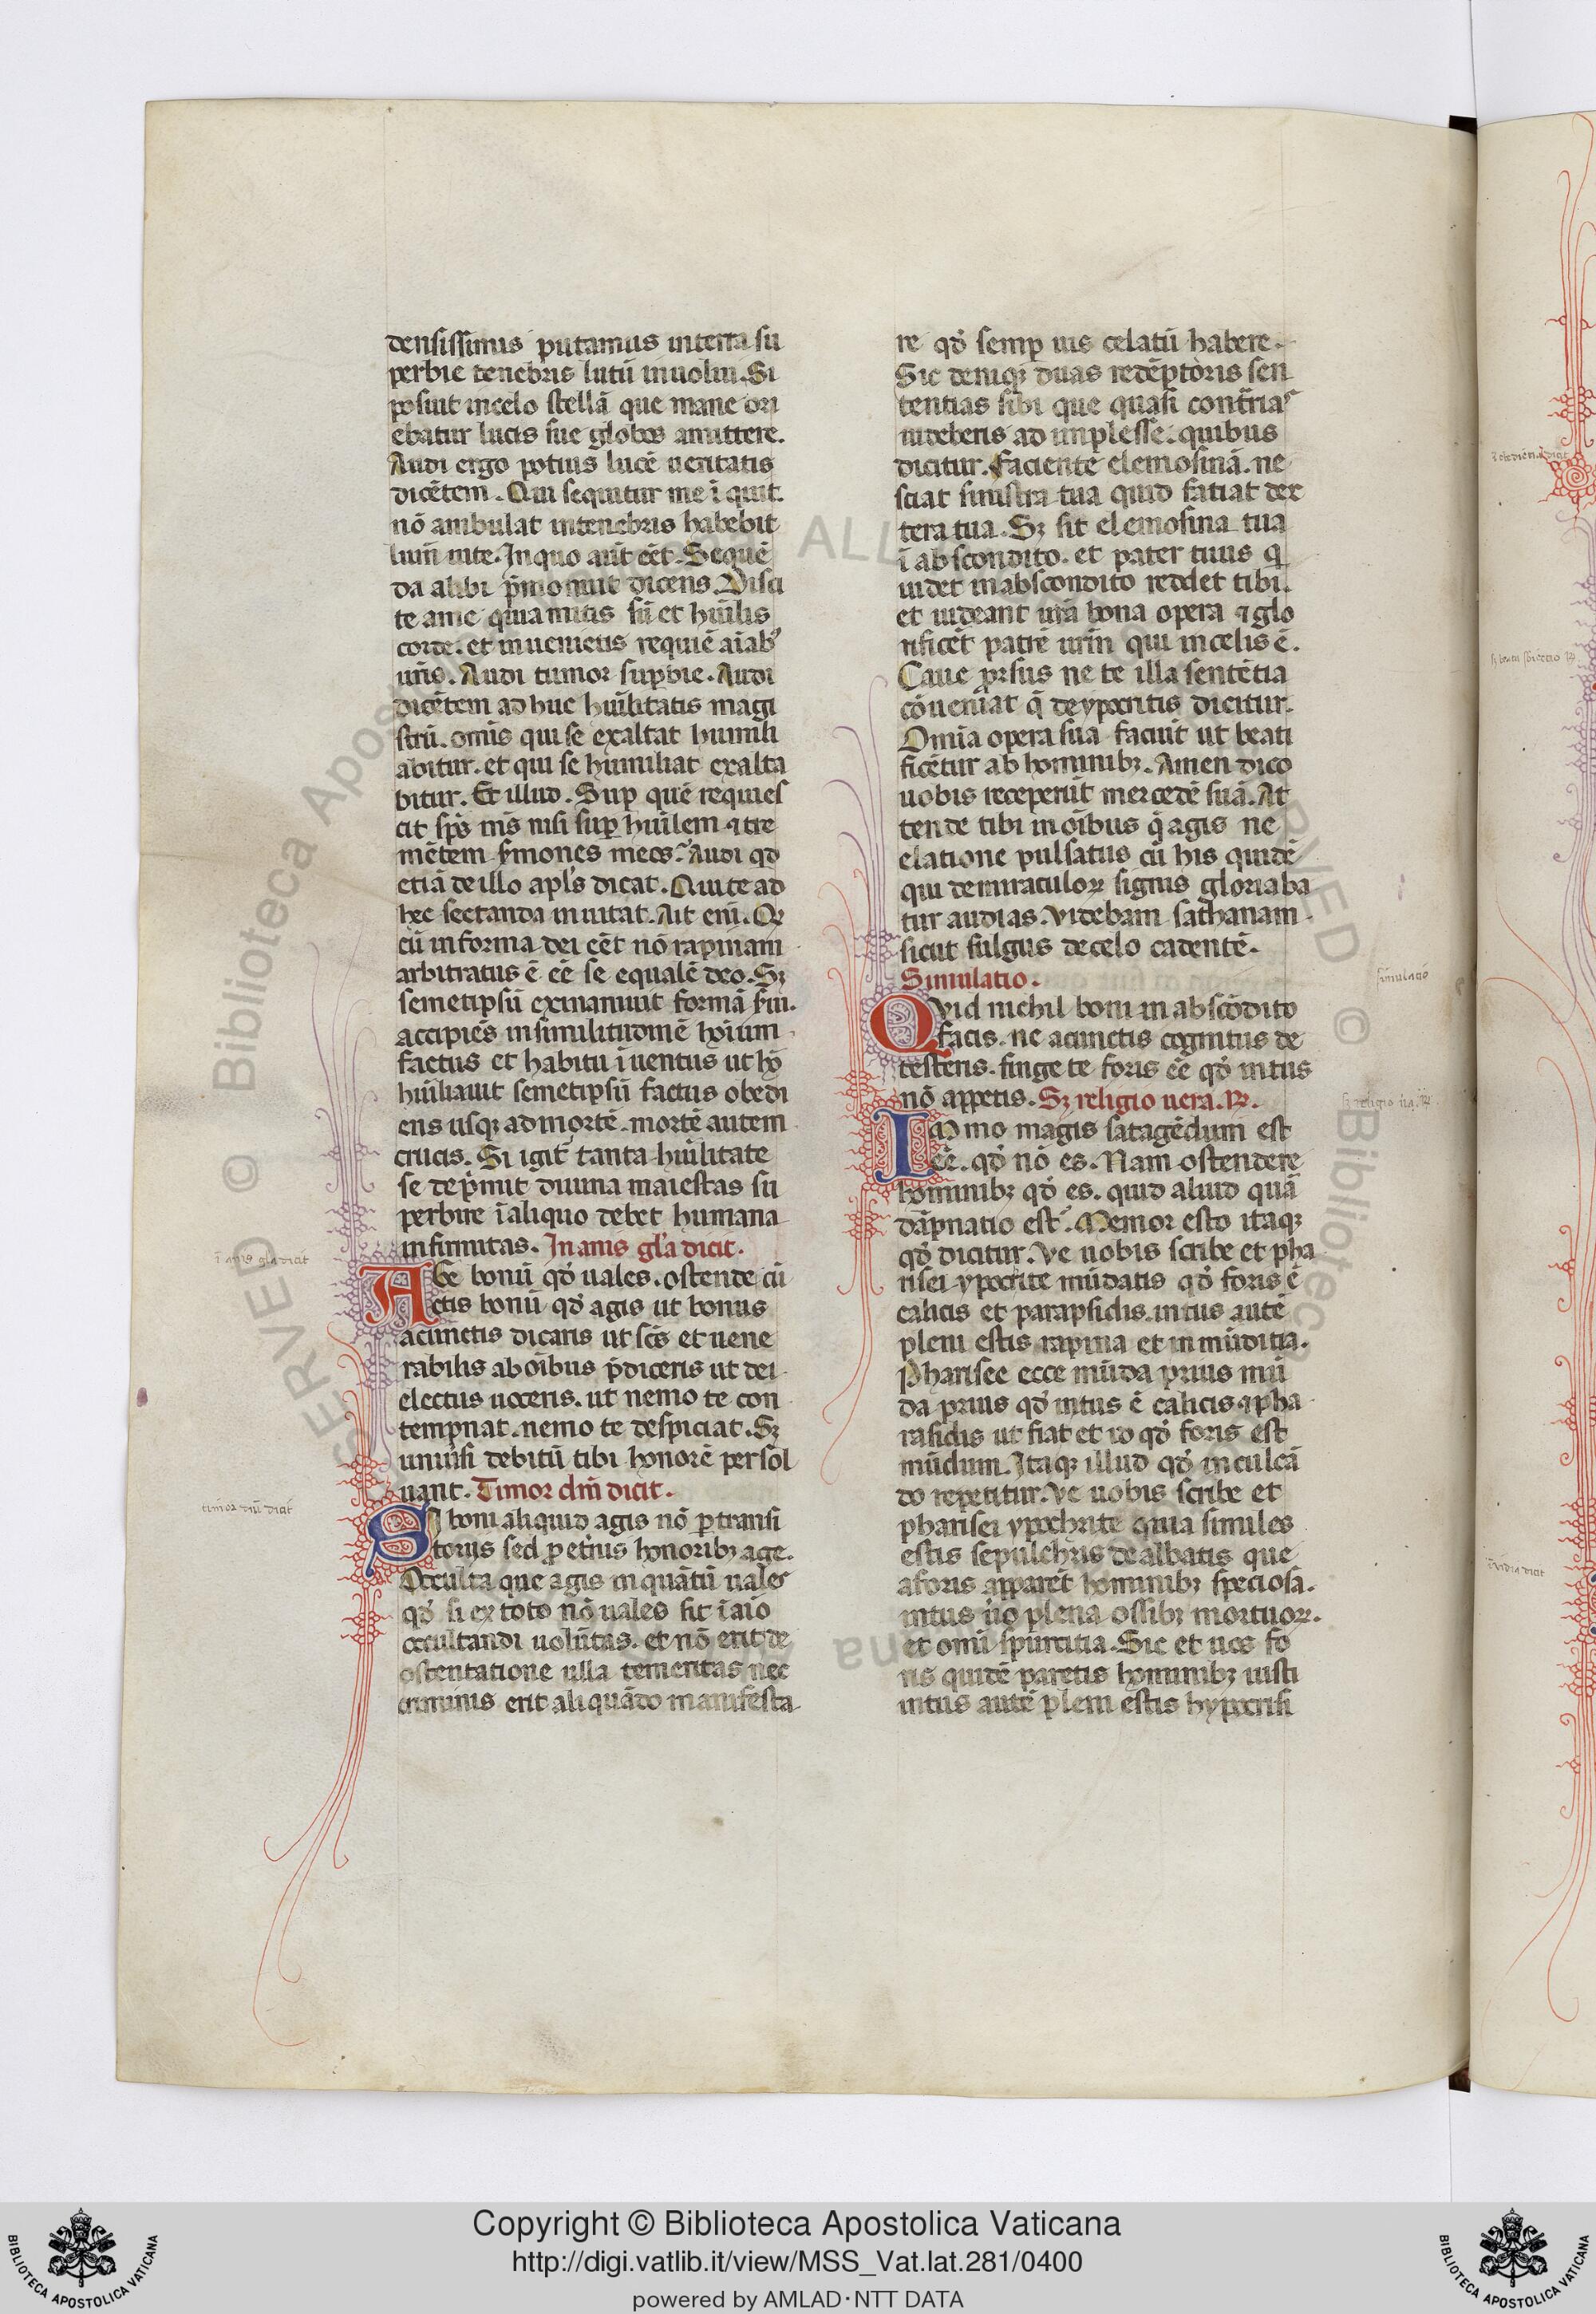 densissimis putamus in terra su
perbie tenebris lutū inuolui. Si
posuit in celo stellā que mane ori
ebatur lucis sue globos amittere.
Audi ergo potius lucē ueritatis
dicētem. Qui sequitur me ī quit.
nō ambulat in tenebris habebit
lum̄ uite. In quo aūt eēt. Sequē
da alibi p̄monuit dicens. Disci
te a me quia mitis sū et hūilis
corde. et inuenietis requiē aīabꝰ
ur̄is. Audi tumor suꝑbie. Audi
dicētem ad huc hūilitatis magi
strū. omīs qui se exaltat humili
abitur. et qui se humiliat exalta
bitur. Et illud. Suꝑ quē requies
cit sp̄s m̄s nisi suꝑ hūilem ⁊ tre
mētem s̄mones meos. Audi qđ
etiā de illo apl̄s dicat. Qui te ad
hec sectanda inuitat. Ait enī. Qꝫ
cū in forma dei eēt nō rapinam
arbitratus ē eē se equalē deo. Sꝫ
semetipsū exinaniuit formā s̄ui.
accipiēs in similitudinē hoīum
factus et habitu īuentus ut hō
hūiliauit semetipsū factus obedi
ens usqꝫ ad mortē. mortē autem
crucis. Si igit̄ tanta hūilitate
se dep̄mit diuina maiestas su
perbire ī aliquo debet humana
infirmitas. Inanis gl̄a dicit.
Abe bonū qđ uales. ostende cū
ctis bonū qđ agis ut bonus
a cunctis dicaris ut sc̄s et uene
rabilis ab oībus p̄diceris ut dei
electus uoceris. ut nemo te con
tempnat. nemo te despiciat. Sꝫ
uniūsi debitū tibi honorē persol
uant. Timor dn̄i dicit.
SI boni aliquid agis nō ꝑ transi
toriis sed ꝓ et̄nis honoribꝫ age.
Occulta que agis in quātū uales
qđ si ex toto nō uales sit ī aīo
occultandi uolūtas. et nō erit de
ostentatione ulla temeritas nec
criminis erit aliquādo manifesta
re qđ semꝑ uis celatū habere.
Sic deniqꝫ duas redēptoris sen
tentias sibi que quasi cont̄rias
uideberis ad implesse. quibus
dicitur. Faciente elemosinā. ne
sciat sinistra tua quid fatiat dex
tera tua. Sꝫ sit elemosina tua
ī abscondito. et pater tuus q̄
uidet in abscondito reddet tibi.
et uideant ur̄a bona opera ⁊ glo
rificēt patrē ur̄m qui in celis ē.
Caue ꝓrsus ne te illa sentētia
cōueniat q̄ de ypocritis dicitur.
Omīa opera sua faciūt ut beati
ficētur ab hominibꝫ. Amen dico
uobis receperūt mercedē suā. At
tende tibi in oībus q̄ agis ne
elatione pulsatus cū his quidē
qui de miraculoꝝ signis gloriaba
tur audias. Videbam sathanam
sicut fulgus de celo cadentē.
Simulatio.
Qvid nichil boni in abscōdito
facis. ne a cunctis cognitus de
testeris. finge te foris eē qđ intus
nō appetis. Sꝫ religio uera. ꝶ.
Immo magis satagēdum est
eē. qđ nō es. Nam ostendere
hominibꝫ qđ es. quid aliud quā
dāpnatio est. Memor esto itaqꝫ
qđ dicitur. Ve uobis scribe et pha
risei ypocrite mūdatis qđ foris ē
calicis et parapsidis. intus autē
pleni estis rapina et inmūditia.
Pharisee ecce mūda prius mū
da prius qđ intus ē calicis ⁊ pha
rasidis ut fiat et id qđ foris est
mūdum. Itaqꝫ illud qđ inculcā
do repetitur. Ve uobis scribe et
pharisei ypochrite quia similes
estis sepulchris dealbatis que
a foris apparēt hominibꝫ speciosa.
intus ūo plena ossibꝫ mortuoꝝ.
et omī spurcitia. Sic et uos fo
ris quidē paretis hominibꝫ iusti
intus autē pleni estis hypocrisi
ī anis gl̄a dicit
timor dn̄i dicit
simulatio
sꝫ religio ūa. ꝶ.
Copyright © Biblioteca Apostolica Vaticana
http://digi.vatlib.it/view/MSS_Vat.lat.281/0400
powered by AMLAD·NTT DATA
BIBLIOTECA APOSTOLICA VATICANA
BIBLIOTECA APOSTOLICA VATICANA